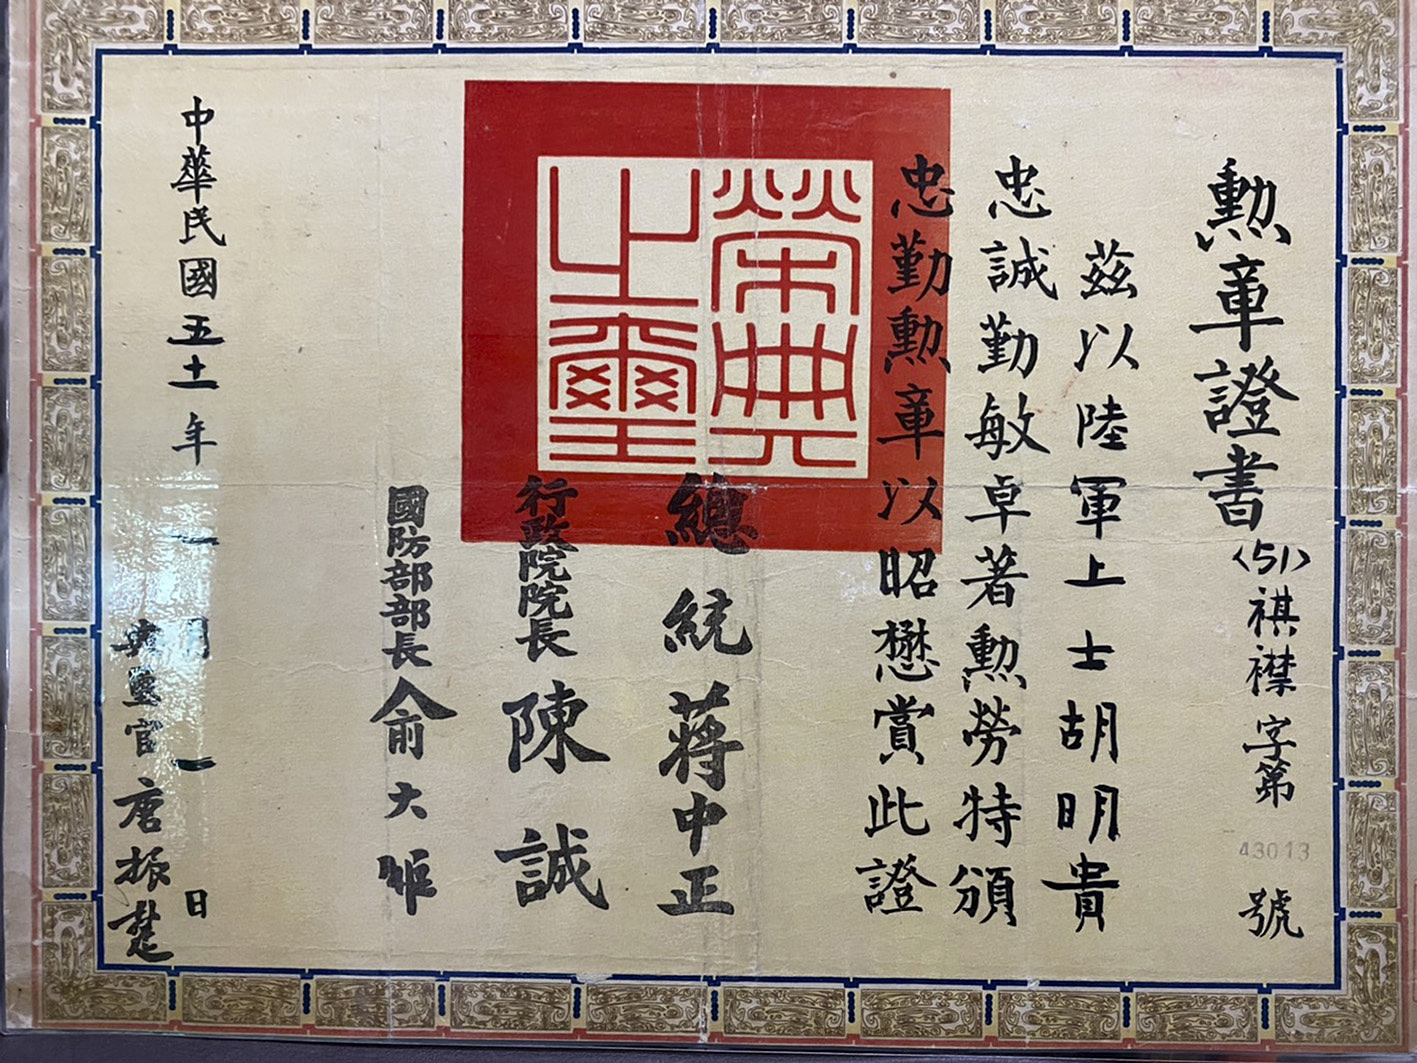 勳章證書〈51〉祺襟字第43013號
茲以陸軍上士胡明貴
忠誠勤敏卓著勳勞特頒
忠勤勳章以昭懋賞此證
榮典之璽
總統蔣中正
行政院院長陳誠
國防部部長俞大維
中華民國五十一年一月一日
典璽官唐振楚